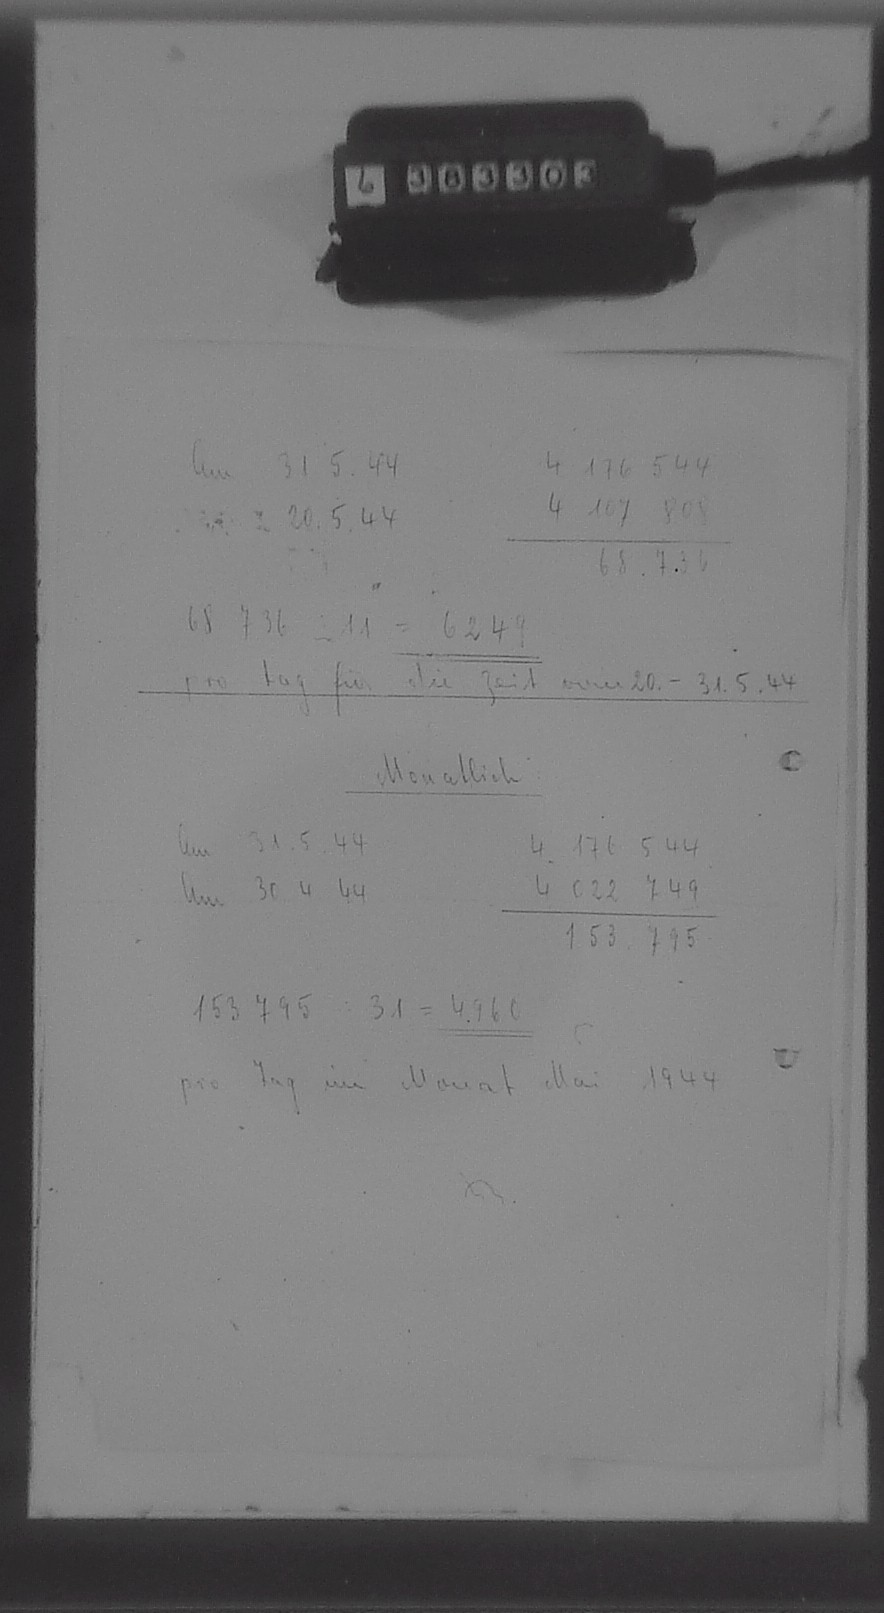 6 383303
Am 31 5. 44 4 176 544
20. 5. 44 4 107 808
68.736
68 736 : 11 = 6249
pro Tag für die Zeit vom 20. - 31. 5. 44
Monatlich
Am 31. 5. 44 4. 176 544
Am 30 4 44 4 022 749
153.795
153 795 : 31 = 4.960
pro Tag im Monat Mai 1944